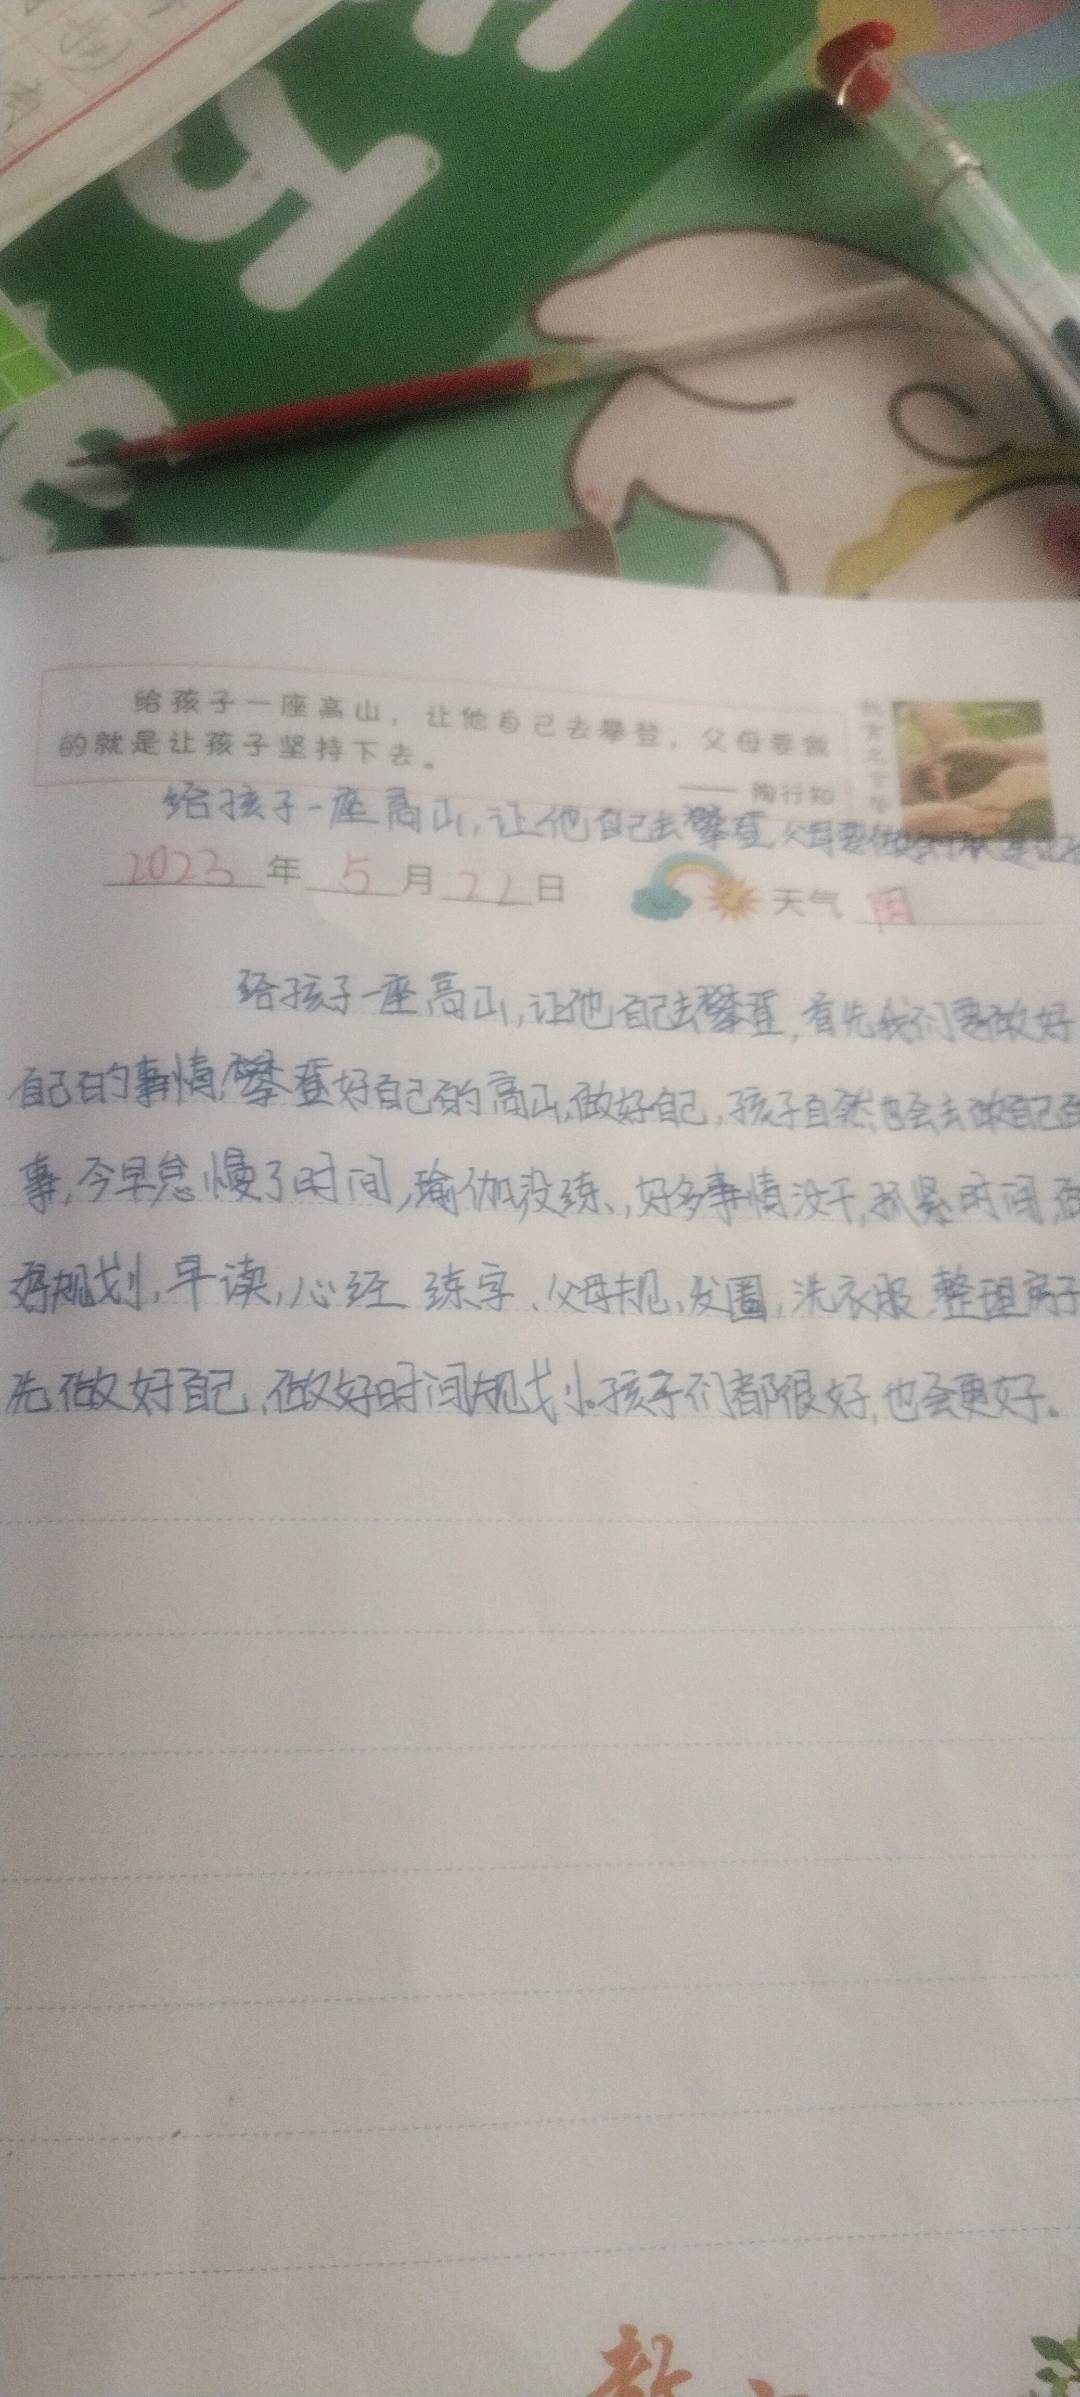 给孩子一座高山，让他自己去攀登，父母要做
的就是让孩子坚持下去。
—— 陶行知
给孩子一座高山，让他自己去攀登，父母要做
2023年5月22日 天气 阴
给孩子一座高山，让他自己去攀登，首先我们要做好
自己的事情，攀登好自己的高山，做好自己，孩子自然也会去做自己的
事，今早怠慢了时间，瑜伽没练，好多事情没干，抓紧时间，做
好规划，早读，心经 练字、父母规、发圈，洗衣服，整理房子
先做好自己，做好时间规划。孩子们都很好，也会更好。